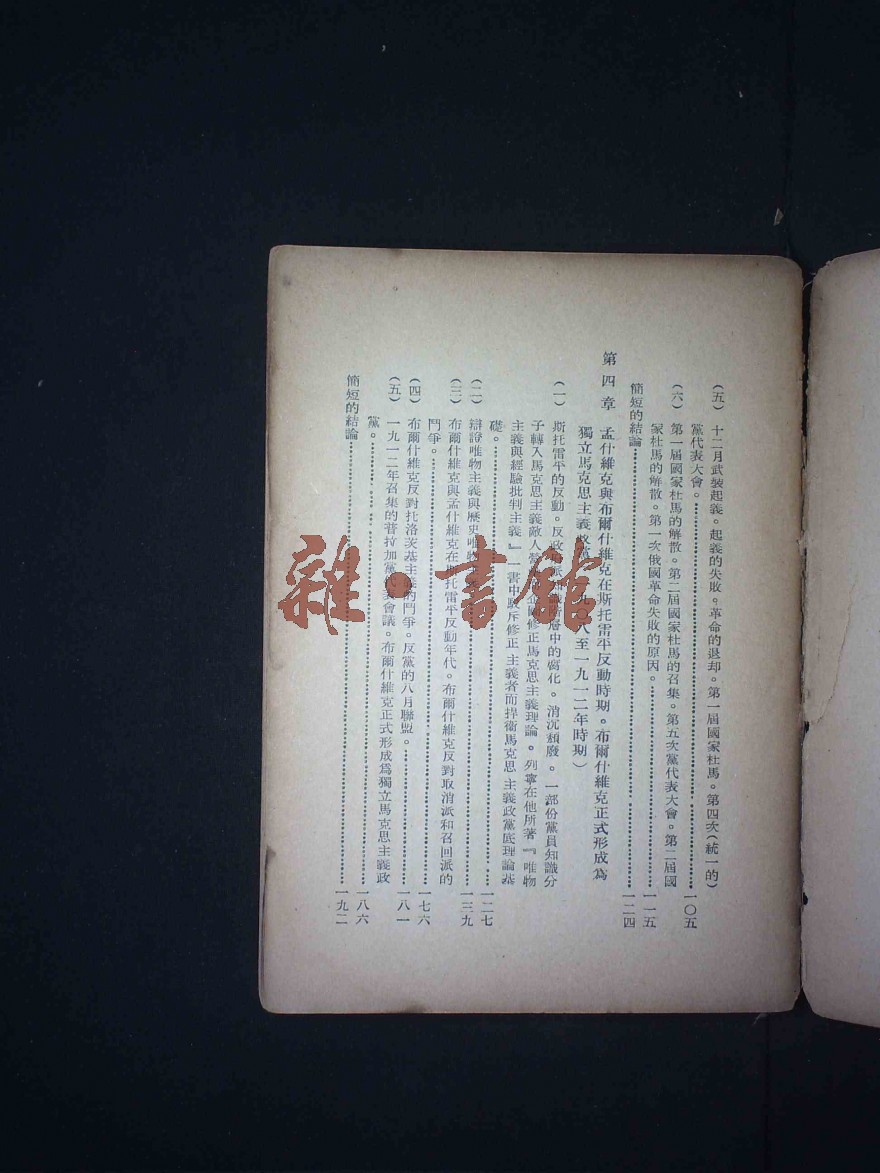 (五) 十二月武裝起義。起義的失敗。革命的退却。第一屆國家杜馬。第四次(統一的)
黨代表大會。……一〇五
(六) 第一屆國家杜馬的解散。第二屆國家杜馬的召集。第五次黨代表大會。第二屆國
家杜馬的解散。第一次俄國革命失敗的原因。……一一五
簡短的結論……一二四
第四章 孟什維克與布爾什維克在斯托雷平反動時期。布爾什維克正式形成為
獨立馬克思主義政黨 八至一九一二年時期)
(一) 斯托雷平的反動。反政 層中的腐化。消沉頹廢。一部份黨員知識分
子轉入馬克思主義敵人營 企圖修正馬克思主義理論。列寧在他所著『唯物
主義與經驗批判主義』一書中駁斥修正主義者而捍衛馬克思主義政黨底理論基
礎。……一二七
(二) 辯證唯物主義與歷史唯物主……一三九
(三) 布爾什維克與孟什維克在斯托雷平反動年代。布爾什維克反對取消派和召回派的
鬥爭。……一七六
(四) 布爾什維克反對托洛茨基主義的鬥爭。反黨的八月聯盟。……一八一
(五) 一九一二年召集的普拉加黨代表會議。布爾什維克正式形成爲獨立馬克思主義政
黨。……一八六
簡短的結論……一九二
雜·書館